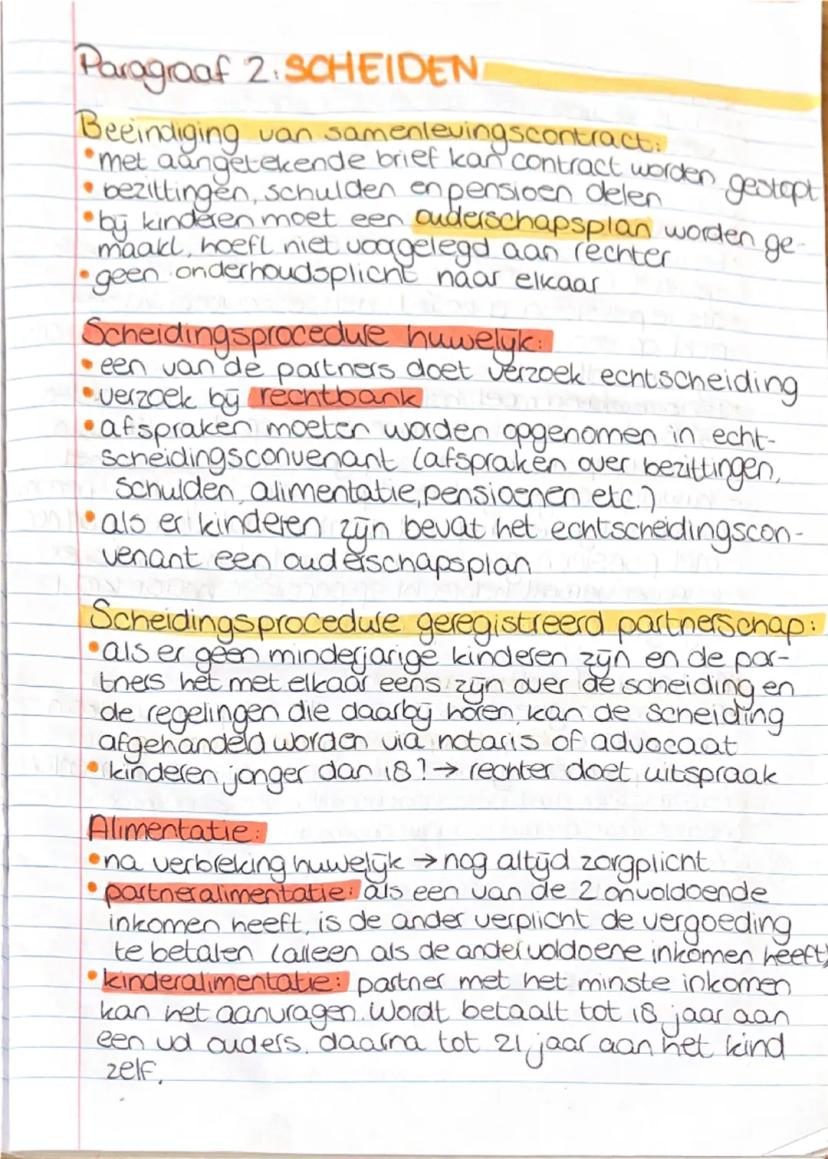 Paragraaf 2: SCHEIDEN
Beëindiging van samenlevingscontract:
• met aangetekende brief kan contract worden gestopt
• bezittingen, schulden en pensioen delen
• bij kinderen moet een ouderschapsplan worden ge-
maakt, hoeft niet voorgelegd aan rechter
• geen onderhoudsplicht naar elkaar
Scheidingsprocedure huwelijk:
• een van de partners doet verzoek echtscheiding
• verzoek bij rechtbank
• afspraken moeten worden opgenomen in echt-
scheidingsconvenant (afspraken over bezittingen,
schulden, alimentatie, pensioenen etc.)
• als er kinderen zijn bevat het echtscheidingscon-
venant een ouderschapsplan
Scheidingsprocedure geregistreerd partnerschap:
• als er geen minderjarige kinderen zijn en de par-
tners het met elkaar eens zijn over de scheiding en
de regelingen die daarbij horen, kan de scheiding
afgehandeld worden via notaris of advocaat
• kinderen jonger dan 18? → rechter doet uitspraak
Alimentatie:
• na verbreking huwelijk → nog altijd zorgplicht
• partneralimentatie: als een van de 2 onvoldoende
inkomen heeft, is de ander verplicht de vergoeding
te betalen (alleen als de ander voldoene inkomen heeft)
• kinderalimentatie: partner met het minste inkomen
kan het aanvragen. Wordt betaalt tot 18 jaar aan
een vd ouders. daarna tot 21 jaar aan het kind
zelf.